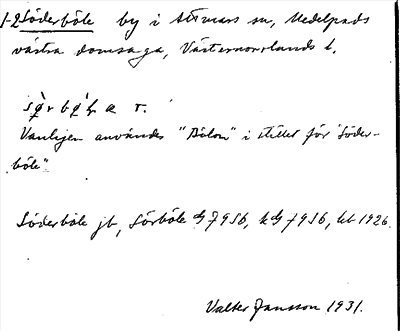 1-2 Söderböle by i Attmars sn, Medelpads
västra domsaga, Västernorrlands l.
Vanligen användes "Bölen" i stället för "Söder-
böle"
Söderböle jb, Sörböle GJ 956, kG J 956, tel 1926.
Valter Jansson 1931.